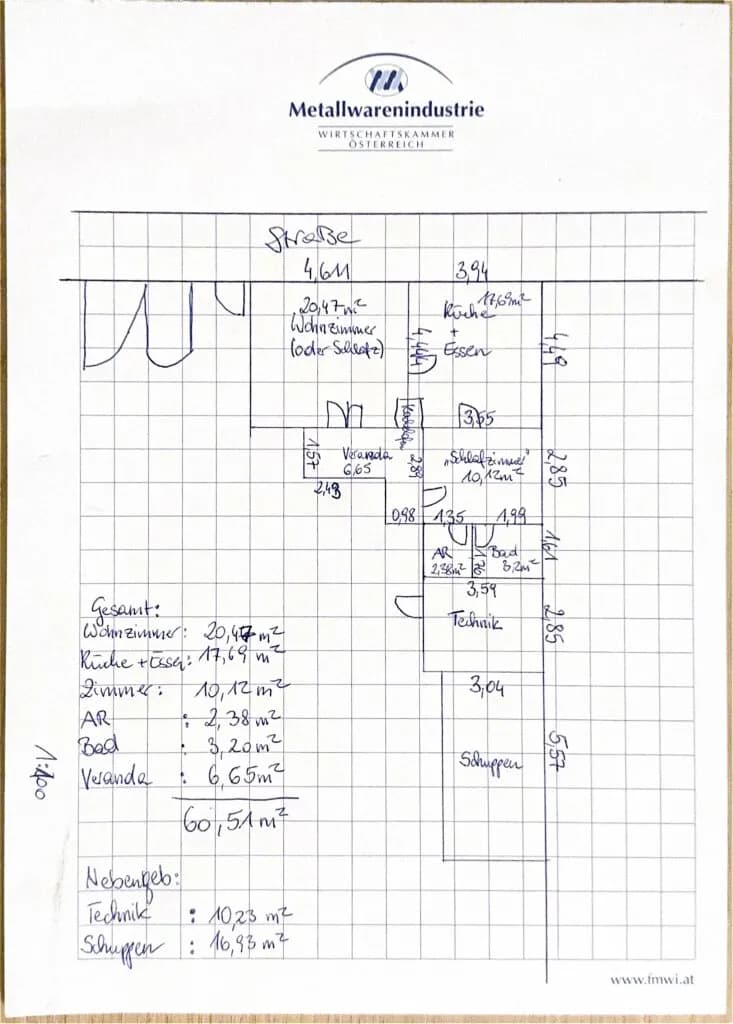 Metallwarenindustrie
WIRTSCHAFTSKAMMER
ÖSTERREICH
Straße
4,611
3,94
20,47 m²
Wohnzimmer
(oder Schlafz)
17,69 m²
Küche
+
Essen
4,444
4,49
3,55
1,57
Veranda
6,65
2,89
2,49
„Schlafzimmer"
10,12 m²
2,85
0,98
1,35
1,99
AR
2,38 m²
1,76
Bad
3,2 m²
1,61
3,59
Technik
2,85
3,04
Schuppen
5,57
Gesamt:
Wohnzimmer: 20,47 m²
Küche + Essen: 17,69 m²
Zimmer: 10,12 m²
AR : 2,38 m²
Bad : 3,20 m²
Veranda : 6,65 m²
60,51 m²
1:100
Nebengeb:
Technik : 10,23 m²
Schuppen : 16,93 m²
www.fmwi.at